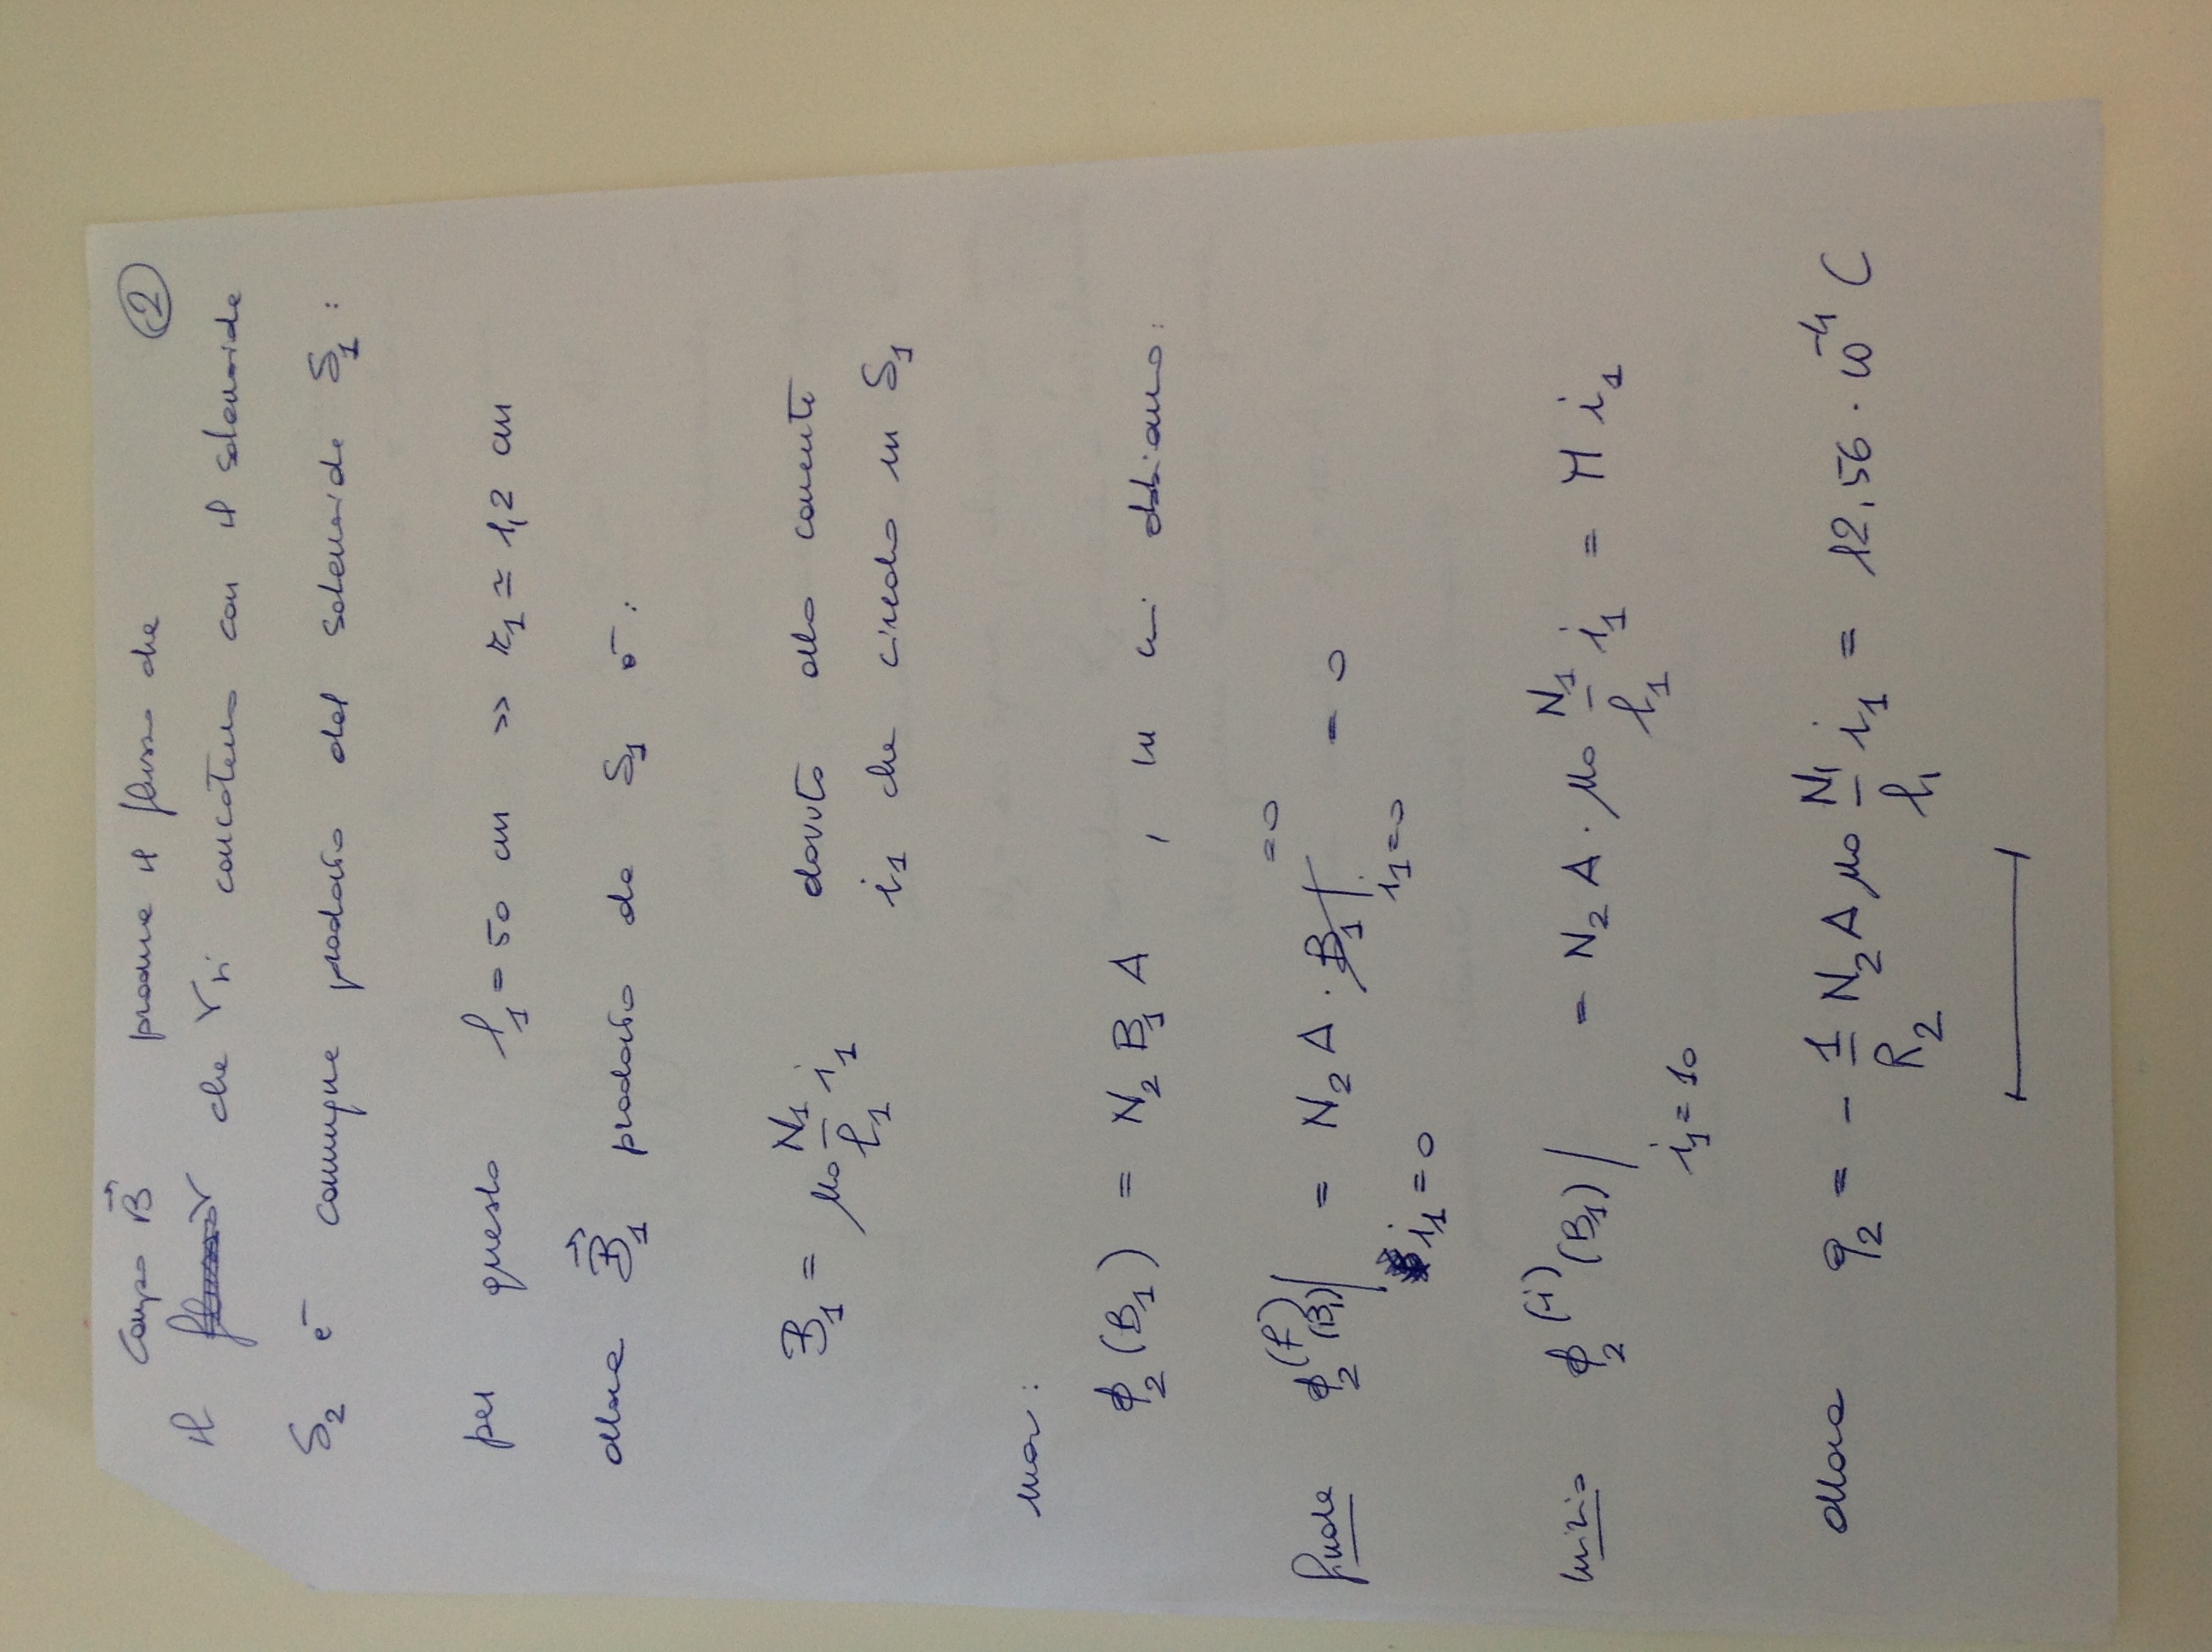 campo B⃗ produce il flusso che
②
il flusso che si concatena con il solenoide
S₂ è comunque prodotto dal solenoide S₁ :
per questo l₁ = 50 cm >> r₁ ≃ 1,2 cm
allora B⃗₁ prodotto da S₁ è :
B₁ = μ₀ N₁/l₁ i₁ dovuto alla corrente
i₁ che circola in S₁
ma :
ϕ₂(B₁) = N₂ B₁ A , in cui abbiamo :
finale ϕ₂⁽ᶠ⁾(B₁)| i₁=0 = N₂ A · B₁| i₁=0 =0 = 0
inizio ϕ₂⁽ⁱ⁾(B₁)| i₁=10 = N₂ A · μ₀ N₁/l₁ i₁ = M i₁
allora q₂ = - 1/R₂ N₂ A μ₀ N₁/l₁ i₁ = 12,56 · 10⁻⁴ C